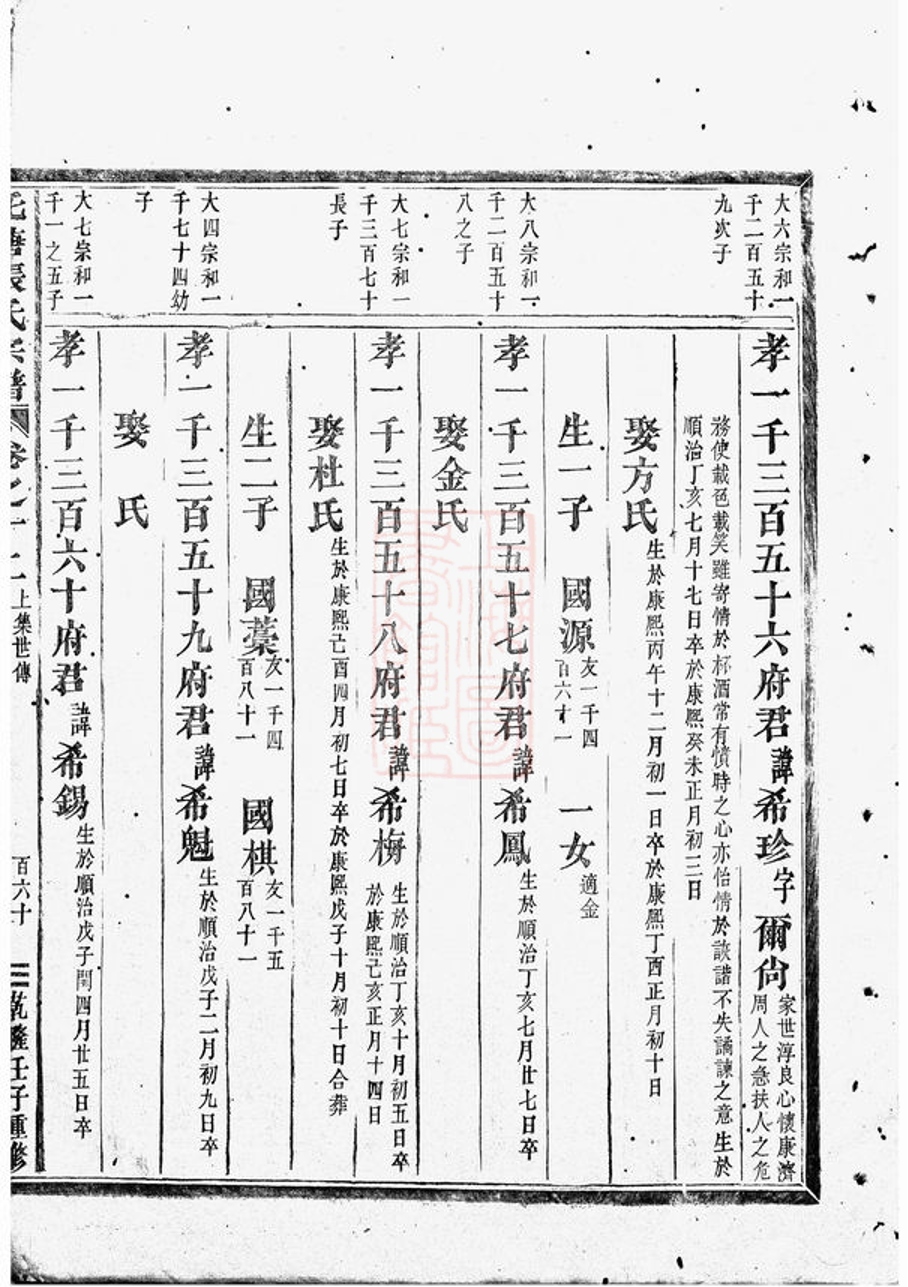 大六宗和一
千二百五十
九次子
孝一千三百五十六府君諱希珍字爾尙
家世淳良心懷康濟
周人之急扶人之危
務使載芭載笑雖寄情於杯酒常有憤時之心亦怡情於談諧不失譎諫之意生於
順治丁亥七月十七日卒於康熙癸未正月初三日
娶方氏
生於康熙丙午十二月初一日卒於康熙丁酉正月初十日
生一子 國源
友一千四
百六十一
一女
適金
大八宗和一
千二百五十
八之子
孝一千三百五十七府君諱希鳳
生於順治丁亥七月廿七日卒
娶金氏
大七宗和一
千三百七十
長子
孝一千三百五十八府君諱希梅
生於順治丁亥十月初五日卒
於康熙己亥正月十四日
娶杜氏
生於康熙己酉四月初七日卒於康熙戊子十月初十日合葬
生二子 國藁
友一千四
百八十一
國棋
友一千五
百八十一
大四宗和一
千七十四幼
子
孝一千三百五十九府君諱希魁
生於順治戊子二月初九日卒
娶 氏
大七宗和一
千一之五子
孝一千三百六十府君諱希錫
生於順治戊子閏四月廿五日卒
張氏宗譜 卷之十二 上集世傳 百六十 乾隆壬子重修